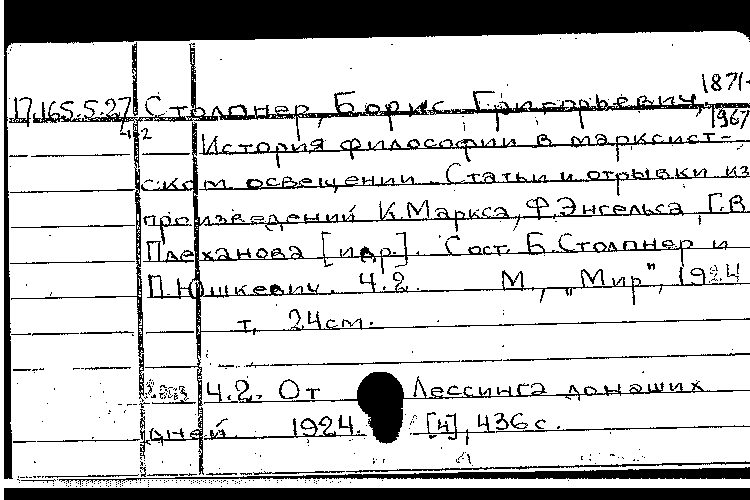 17.165.5.27 Столпнер, Борис Григорьевич, 1871-
ч.2 1967
История философии в марксист-
ском освещении. Статьи и отрывки из
произведений К.Маркса, Ф.Энгельса, Г.В.
Плеханова [и др]. Сост. Б.Столпнер и
П.Юшкевич. Ч.2. М., „Мир", 1924
т, 24см.
2 экз Ч.2. От Лессинга до наших
дней. 1924. [4], 436 с.